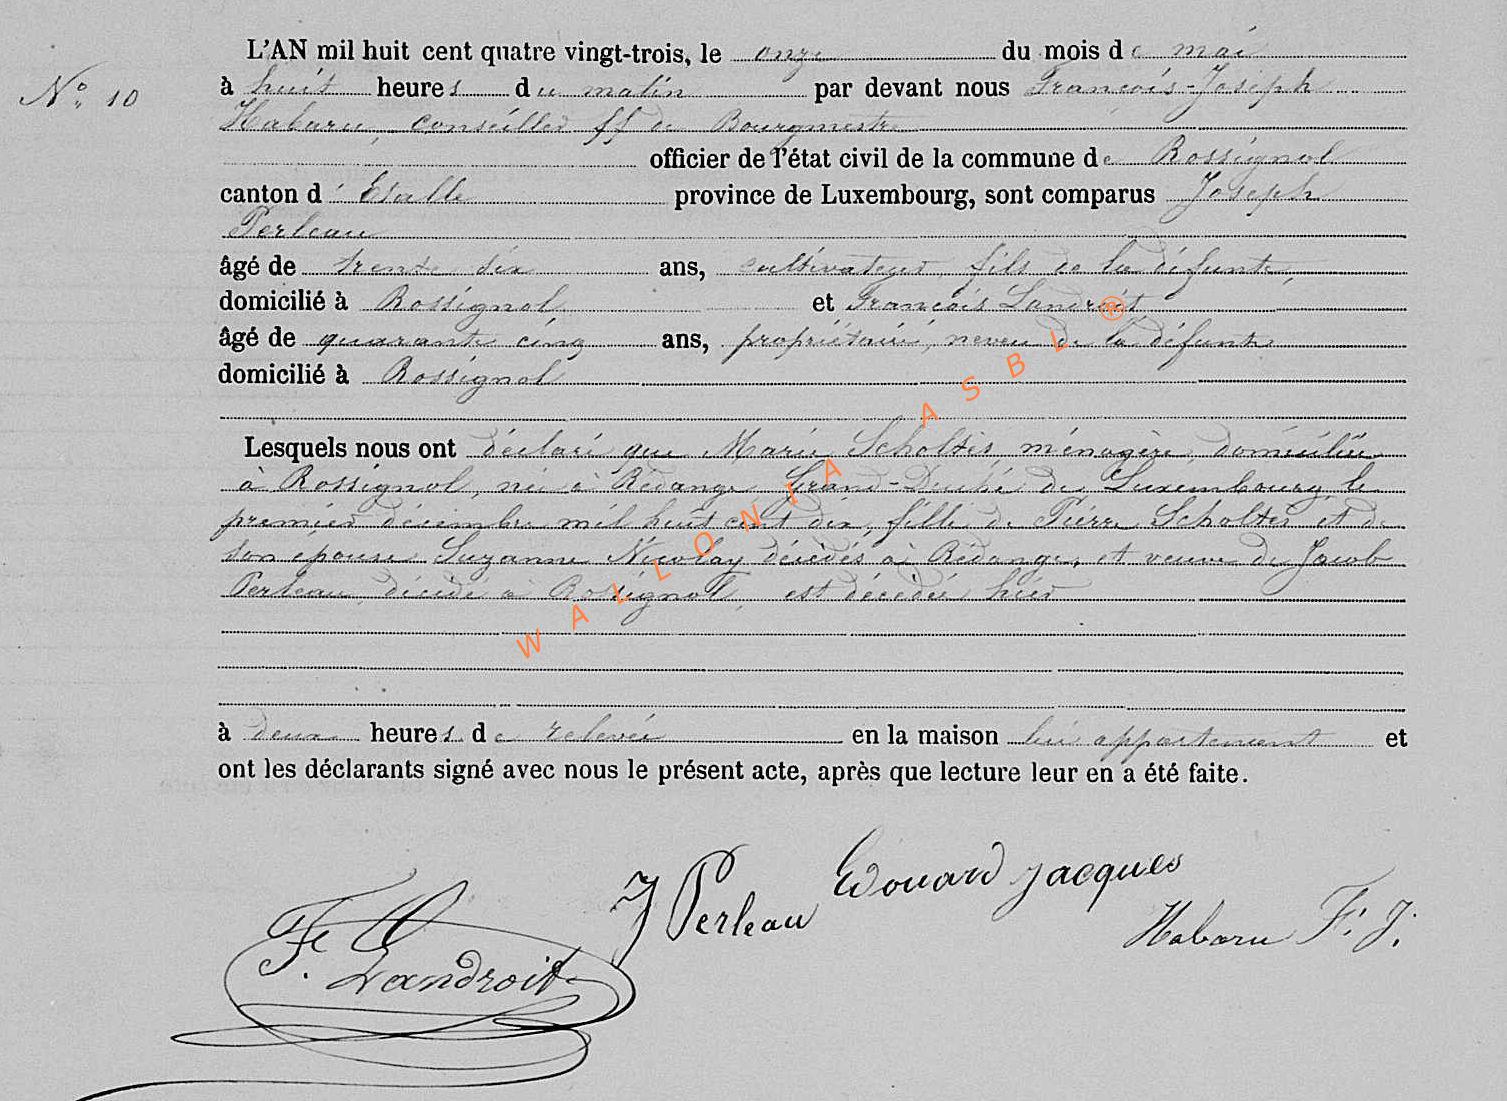 L'AN mil huit cent quatre vingt-trois, le onze du mois de mai
N° 10
à huit heures du matin par devant nous François-Joseph
Habaru, conseiller ff de Bourgmestre
officier de l'état civil de la commune de Rossignol
canton d'Etalle province de Luxembourg, sont comparus Joseph
Perleau
âgé de trente six ans, cultivateur fils de la défunte,
domicilié à Rossignol et François Landroit
âgé de quarante cinq ans, propriétaire, neveu de la défunte
domicilié à Rossignol
Lesquels nous ont déclaré que Marie Scholtes ménagère, domiciliée
à Rossignol, née à Rédange Grand-Duché de Luxembourg le
premier décembre mil huit cent dix, fille de Pierre Scholtes et de
son épouse Suzanne Nicolay décédés à Rédange, et veuve de Jacob
Perleau, décédé à Rossignol, est décédée hier
à deux heures de relevée en la maison lui appartenant et
ont les déclarants signé avec nous le présent acte, après que lecture leur en a été faite.
Edouard Jacques
J Perleau
Habaru F. J.
F. Landroit
WALLONIA ASBL ®